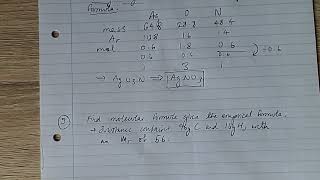 formula.
Ag O N
mass 64.8 28.8 48.4
Ar 108 16 14
mol 0.6 1.8 0.6
0.6 0.6 0.6 ÷0.6
1 3 1
→ Ag O3 N ⇒ AgNO3
9) Find molecular formula given the empirical formula,
→ Substance contains 48g C and 10g H, with
an Mr of 56.